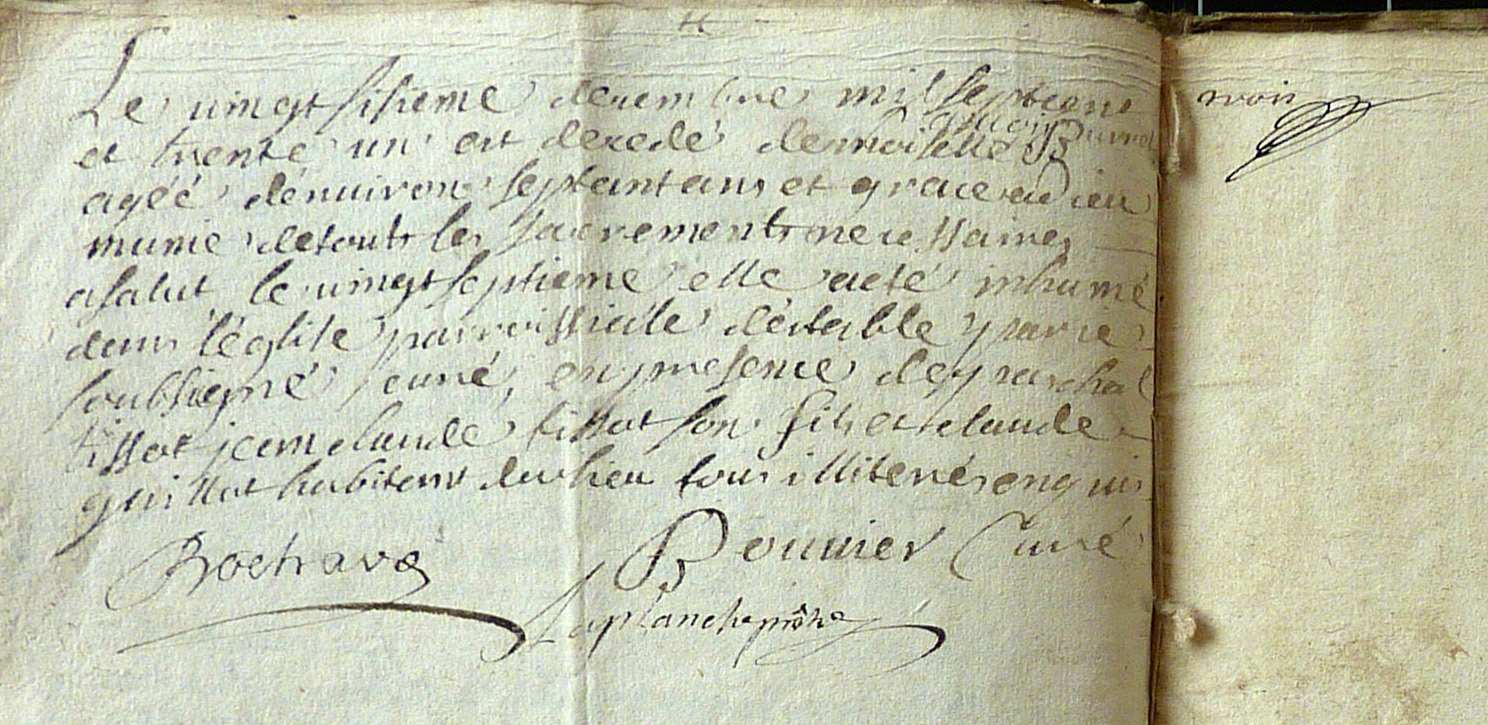 Le vingt sisieme decembre mil sept cent
et trente un est decedé demoiselle
agéé dénuiron septant ans et grace a dieu
munie de touts les sacrements necessaires
a salut le vingt septieme elle a eté inhumé
dans l'églite parroissiale déstable par ie
soubsigné curé, en presence de paschal
tissot jean claude tissot son fils et claude
guillot habitant du lieu tous illiterés enquis
Rochrave Bouvier Curé
Laplanche prêtre